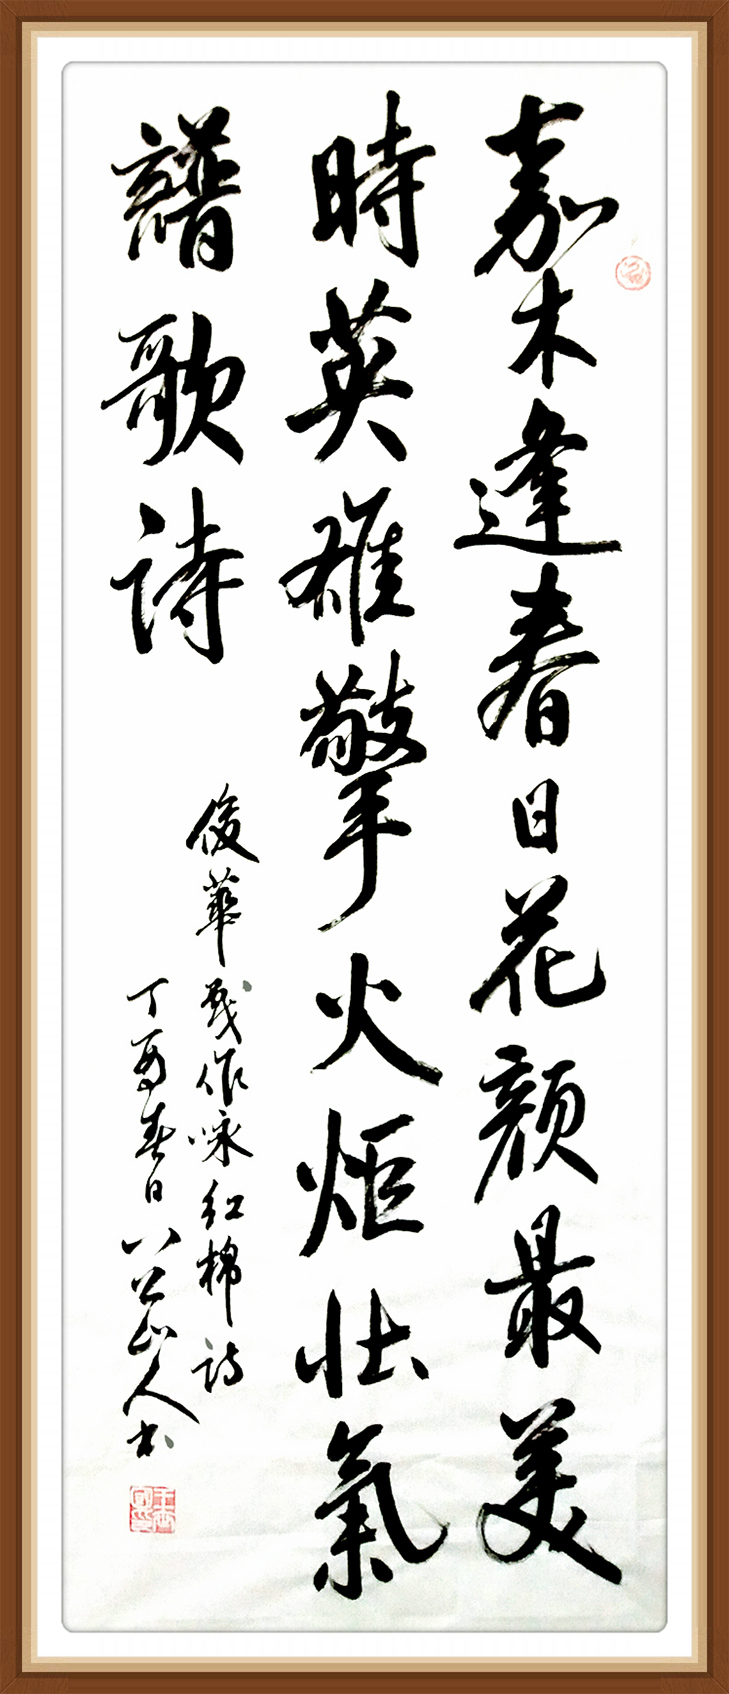 嘉木逢春日花颜最美
時英雄擎火炬壮氣
譜歌诗
俊華战作咏红棉诗
丁酉春日八公山人书